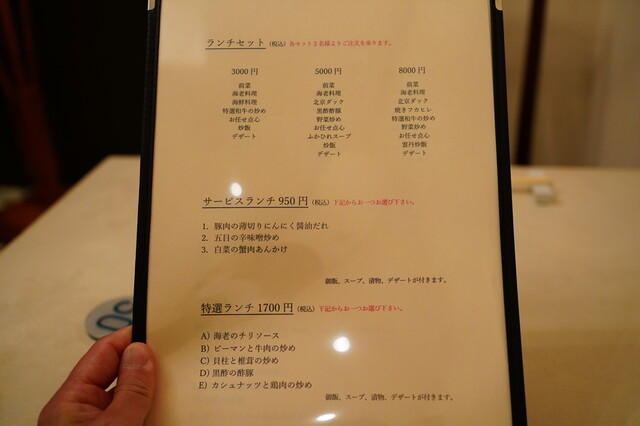 ランチセット (税込) 各セット2名様よりご注文を承ります。
3000円
前菜
海老料理
海鮮料理
特選和牛の炒め
お任せ点心
炒飯
デザート
5000円
前菜
海老料理
北京ダック
黒酢酢豚
野菜炒め
お任せ点心
ふかひれスープ
炒飯
デザート
8000円
前菜
海老料理
北京ダック
焼きフカヒレ
特選和牛の炒め
野菜炒め
お任せ点心
雲丹炒飯
デザート
サービスランチ 950円 (税込) 下記からお一つお選び下さい。
1. 豚肉の薄切りにんにく醤油だれ
2. 五目の辛味噌炒め
3. 白菜の蟹肉あんかけ
御飯、スープ、漬物、デザートが付きます。
特選ランチ 1700円 (税込) 下記からお一つお選び下さい。
A) 海老のチリソース
B) ピーマンと牛肉の炒め
C) 貝柱と椎茸の炒め
D) 黒酢の酢豚
E) カシュナッツと鶏肉の炒め
御飯、スープ、漬物、デザートが付きます。